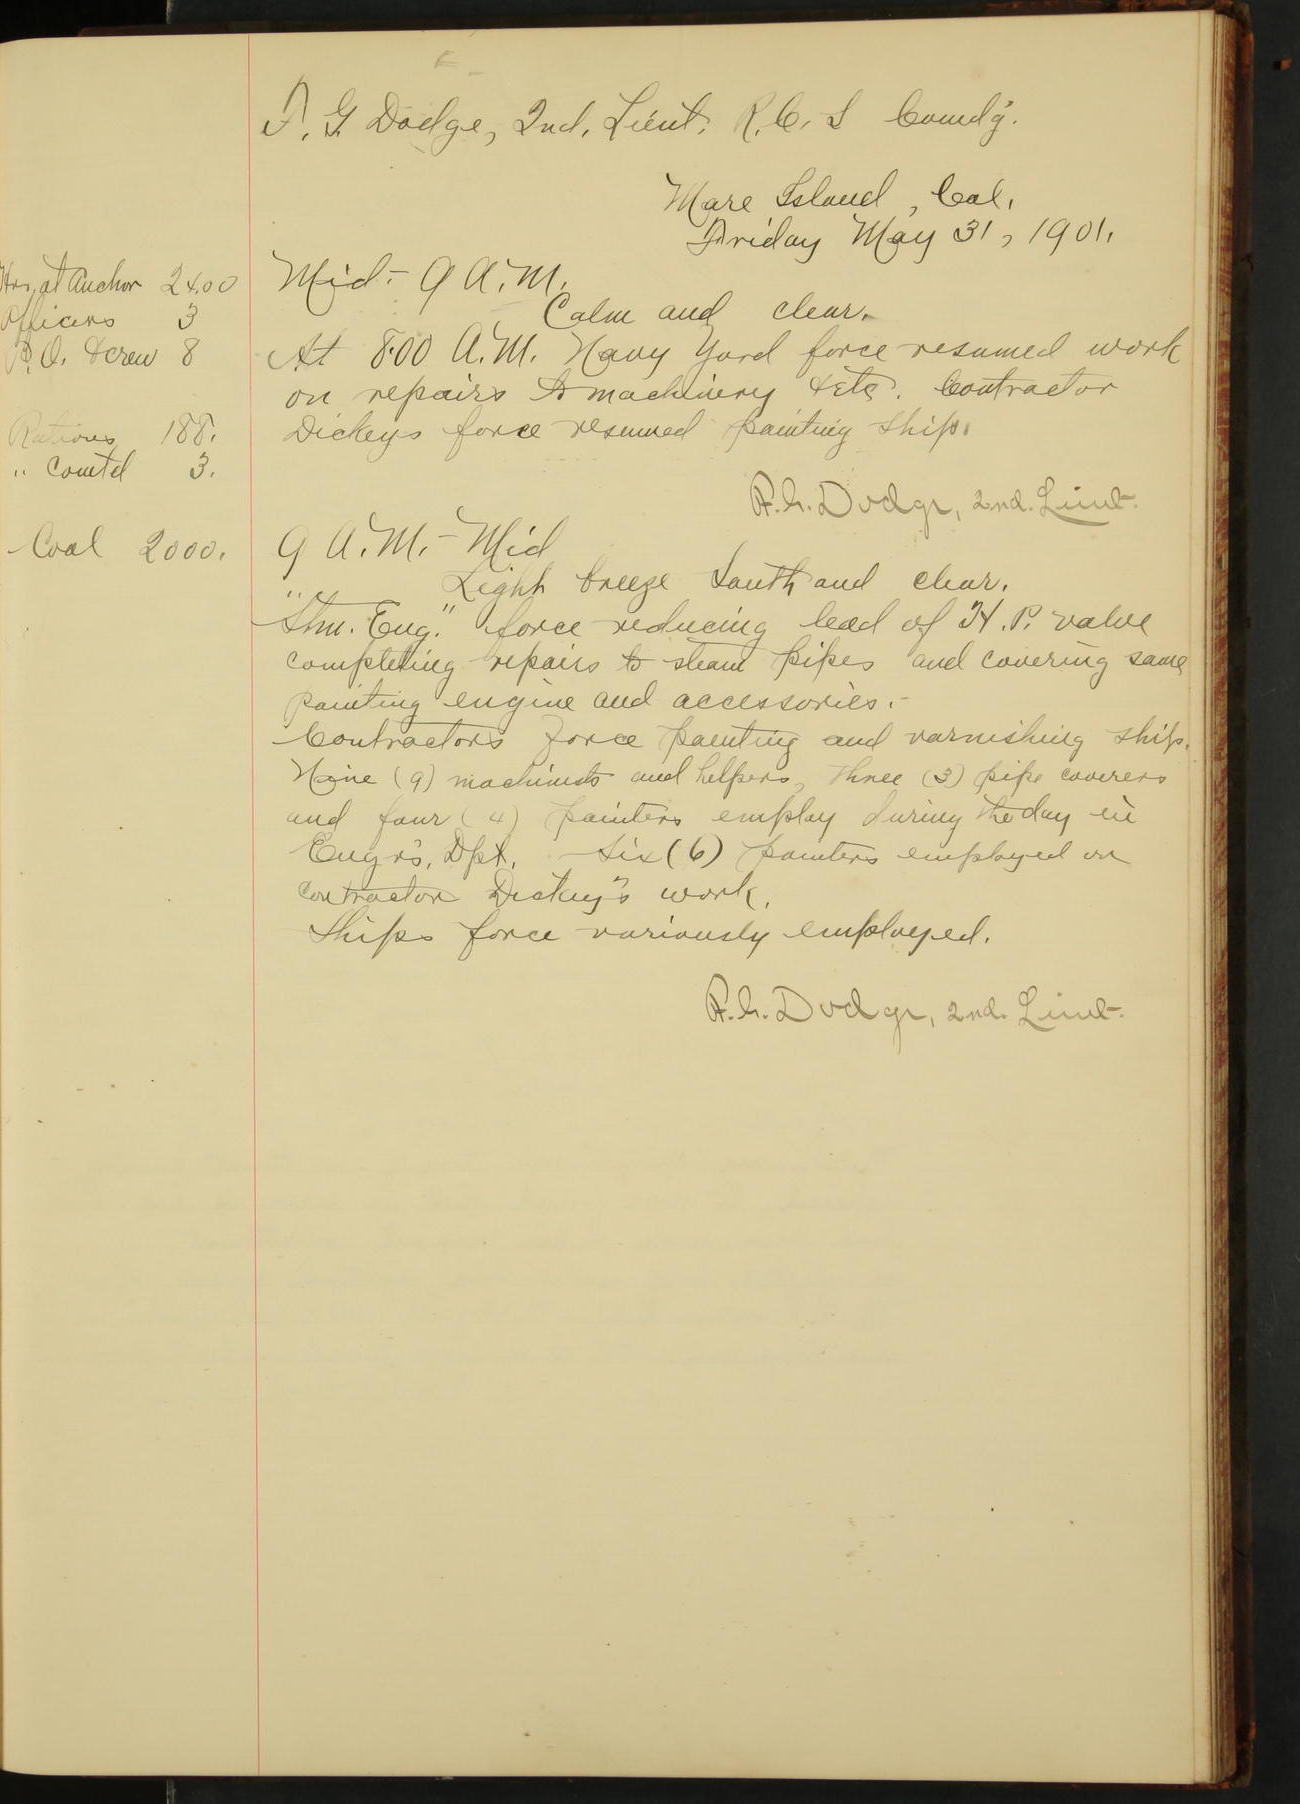 F. G. Dodge, 2nd. Lieut. R. C. S Comd'g.
Mare Island, Cal.
Friday May 31, 1901.
Hrs. at Anchor 24.00
Officers 3
P.O. & crew 8
Rations 188.
" Comtd 3.
Coal 2000.
Mid - 9 A.M.
Calm and clear.
At 8.00 A.M. Navy Yard force resumed work
on repairs to machinery &etc. Contractor
Dickeys force resumed painting ship.
F.G. Dodge, 2nd. Lieut.
9 A.M. - Mid
Light breeze South and clear.
"Stm. Eng." force reducing lead of H.P. valve
completing repairs to steam pipes and covering same
painting engine and accessories.-
Contractors force painting and varnishing ship.
Nine (9) machinists and helpers, three (3) pipe coverers
and four (4) painters employ during the day in
Engr's. Dpt. Six (6) painters employed on
contractor Dickey's work.
Ships force variously employed.
F.G. Dodge, 2nd. Lieut.